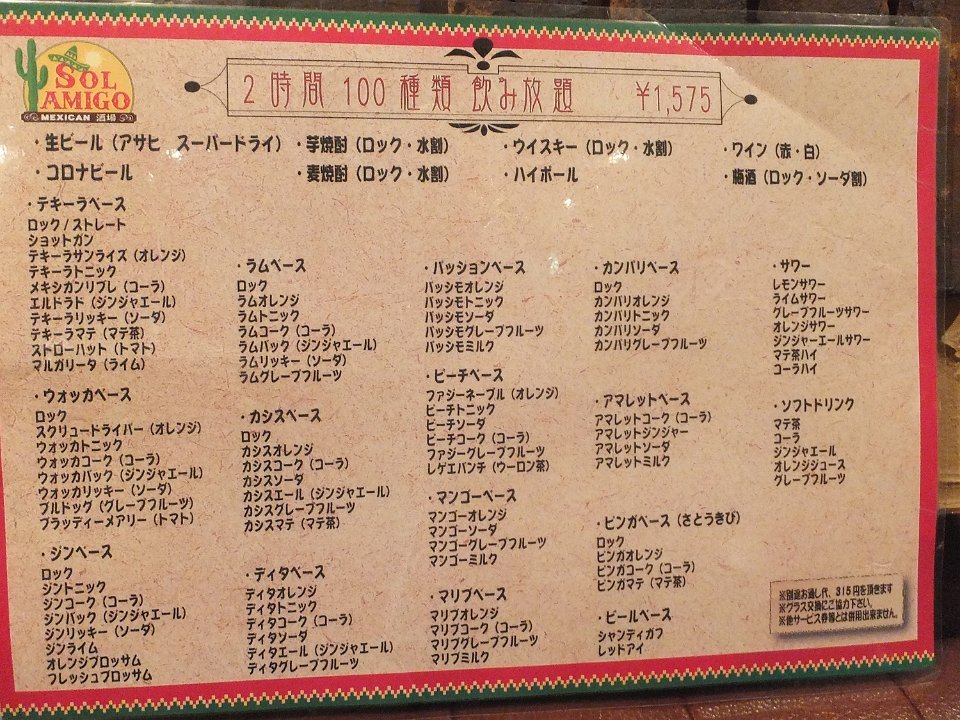 SOL
AMIGO
MEXICAN 酒場
2時間 100種類 飲み放題 ¥1,575
・生ビール（アサヒ スーパードライ）
・コロナビール
・芋焼酎（ロック・水割）
・麦焼酎（ロック・水割）
・ウイスキー（ロック・水割）
・ハイボール
・ワイン（赤・白）
・梅酒（ロック・ソーダ割）
・テキーラベース
ロック / ストレート
ショットガン
テキーラサンライズ（オレンジ）
テキーラトニック
メキシカンリブレ（コーラ）
エルドラド（ジンジャエール）
テキーラリッキー（ソーダ）
テキーラマテ（マテ茶）
ストローハット（トマト）
マルガリータ（ライム）
・ウォッカベース
ロック
スクリュードライバー（オレンジ）
ウォッカトニック
ウォッカコーク（コーラ）
ウォッカバック（ジンジャエール）
ウォッカリッキー（ソーダ）
ブルドッグ（グレープフルーツ）
ブラッディーメアリー（トマト）
・ジンベース
ロック
ジントニック
ジンコーク（コーラ）
ジンバック（ジンジャエール）
ジンリッキー（ソーダ）
ジンライム
オレンジブロッサム
フレッシュブロッサム
・ラムベース
ロック
ラムオレンジ
ラムトニック
ラムコーク（コーラ）
ラムバック（ジンジャエール）
ラムリッキー（ソーダ）
ラムグレープフルーツ
・カシスベース
ロック
カシスオレンジ
カシスコーク（コーラ）
カシスソーダ
カシスエール（ジンジャエール）
カシスグレープフルーツ
カシスマテ（マテ茶）
・ディタベース
ディタオレンジ
ディタトニック
ディタコーク（コーラ）
ディタソーダ
ディタエール（ジンジャエール）
ディタグレープフルーツ
・パッションベース
パッシモオレンジ
パッシモトニック
パッシモソーダ
パッシモグレープフルーツ
パッシモミルク
・ピーチベース
ファジーネーブル（オレンジ）
ピーチトニック
ピーチソーダ
ピーチコーク（コーラ）
ファジーグレープフルーツ
レゲエパンチ（ウーロン茶）
・マンゴーベース
マンゴーオレンジ
マンゴーソーダ
マンゴーグレープフルーツ
マンゴーミルク
・マリブベース
マリブオレンジ
マリブコーク（コーラ）
マリブグレープフルーツ
マリブミルク
・カンパリベース
ロック
カンパリオレンジ
カンパリトニック
カンパリソーダ
カンパリグレープフルーツ
・アマレットベース
アマレットコーク（コーラ）
アマレットジンジャー
アマレットソーダ
アマレットミルク
・ピンガベース（さとうきび）
ロック
ピンガオレンジ
ピンガコーク（コーラ）
ピンガマテ（マテ茶）
・ビールベース
シャンディガフ
レッドアイ
・サワー
レモンサワー
ライムサワー
グレープフルーツサワー
オレンジサワー
ジンジャーエールサワー
マテ茶ハイ
コーラハイ
・ソフトドリンク
マテ茶
コーラ
ジンジャエール
オレンジジュース
グレープフルーツ
※別途お通し代、315円を頂きます
※グラス交換にご協力下さい。
※他サービス券等とは併用出来ません。